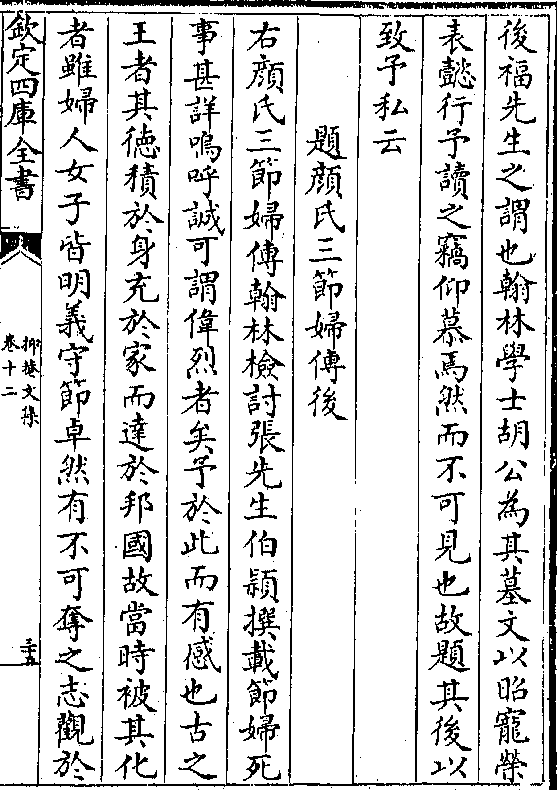 後福先生之謂也翰林學士胡公為其墓文以昭寵榮
表懿行予讀之竊仰慕焉然而不可見也故題其後以
致予私云
題顔氏三節婦傳後
右顔氏三節婦傳翰林檢討張先生伯穎撰載節婦死
事甚詳嗚呼誠可謂偉烈者矣予於此而有感也古之
王者其徳積於身充於家而達於邦國故當時被其化
者雖婦人女子皆明義守節卓然有不可奪之志觀於
欽定四庫全書
抑菴文集
卷十二
三十五